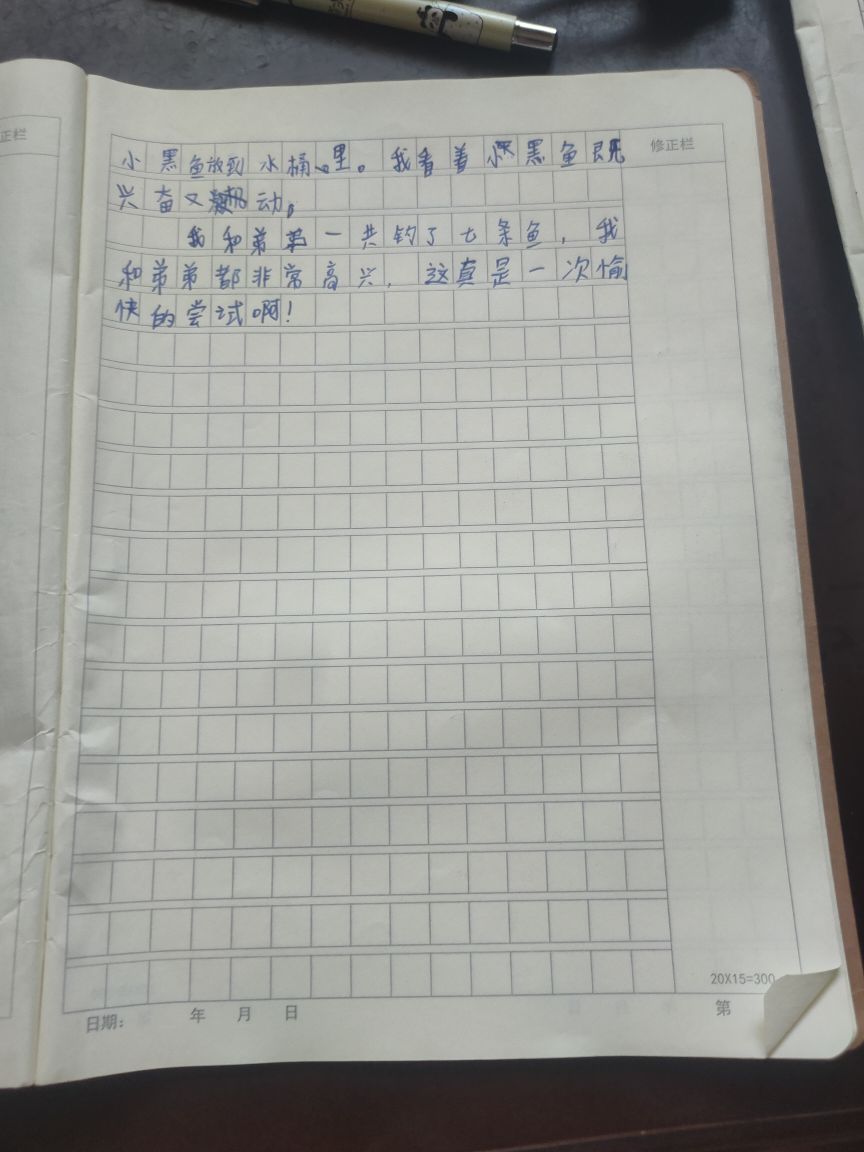 正栏
修正栏
小黑鱼放到水桶里。我看着小黑鱼既
兴奋又动。
我和弟弟一共钓了七条鱼，我
和弟弟都非常高兴，这真是一次愉
快的尝试啊！
20X15=300
日期： 年 月 日
第